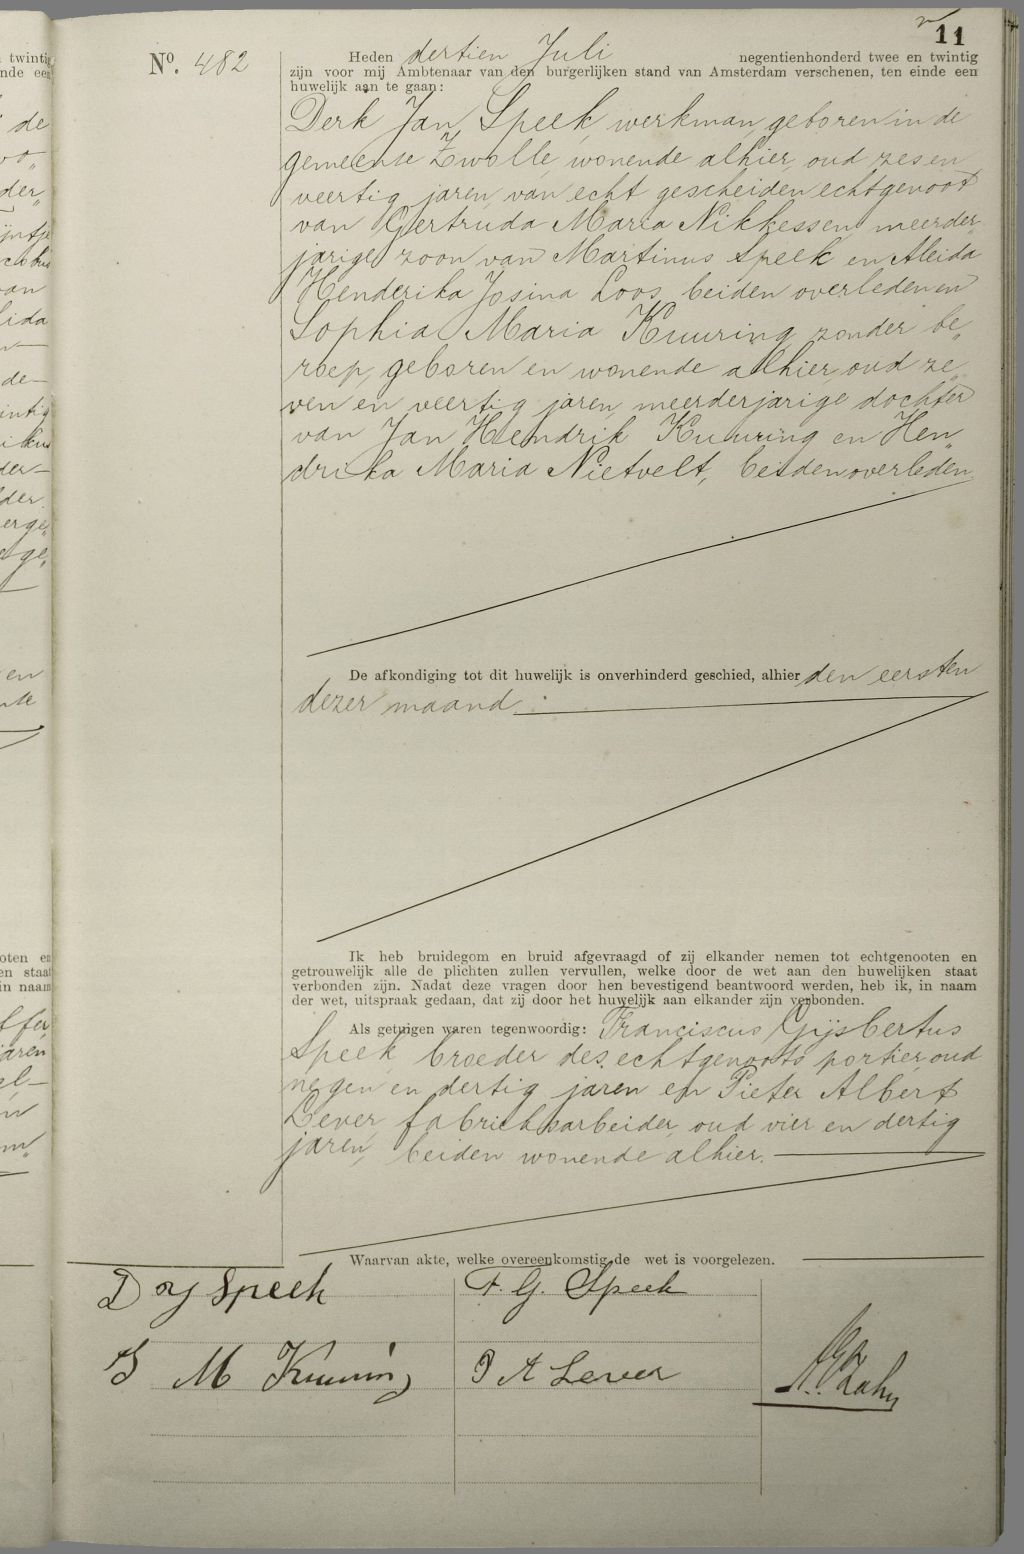 11
No. 482
Heden dertien Juli negentienhonderd twee en twintig
zijn voor mij Ambtenaar van den burgerlijken stand van Amsterdam verschenen, ten einde een
huwelijk aan te gaan:
Derk Jan Speek, werkman, geboren in de
gemeente Zwolle, wonende alhier, oud zes en
veertig jaren, van echt gescheiden echtgenoot
van Gertruda Maria Nikkessen, meerder-
jarige zoon van Martinus Speek en Aleida
Henderika Josina Loos, beiden overleden en
Sophia Maria Kuuring, zonder be„
roep, geboren en wonende alhier, oud ze„
ven en veertig jaren, meerderjarige dochter
van Jan Hendrik Kuuring en Hen„
drika Maria Nietvelt, beiden overleden.
De afkondiging tot dit huwelijk is onverhinderd geschied, alhier den eersten
dezer maand.
Ik heb bruidegom en bruid afgevraagd of zij elkander nemen tot echtgenooten en
getrouwelijk alle de plichten zullen vervullen, welke door de wet aan den huwelijken staat
verbonden zijn. Nadat deze vragen door hen bevestigend beantwoord werden, heb ik, in naam
der wet, uitspraak gedaan, dat zij door het huwelijk aan elkander zijn verbonden.
Als getuigen waren tegenwoordig: Franciscus Gijsbertus
Speek, broeder des echtgenoots, portier, oud
negen en dertig jaren en Pieter Albert
Lever, fabrieksarbeider, oud vier en dertig
jaren, beiden wonende alhier.
Waarvan akte, welke overeenkomstig de wet is voorgelezen.
D J Speek
F. G. Speek
S M Kuuring
P A Lever